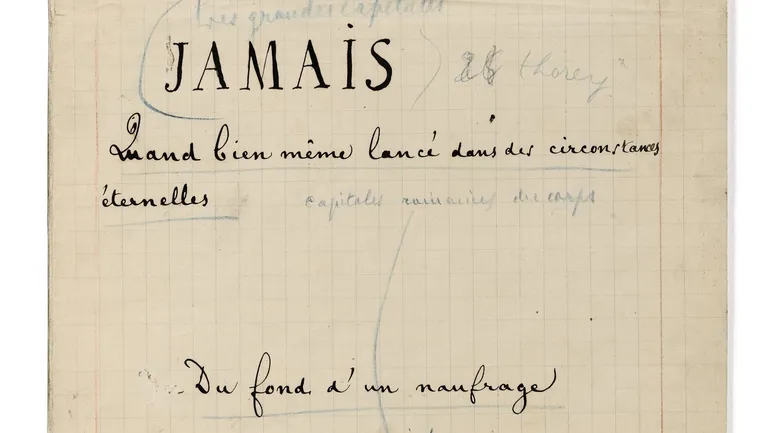 Les grandes Capitales
JAMAIS
thorey
Quand bien même lancé dans des circonstances
éternelles
capitales romaines du corps
Du fond d'un naufrage